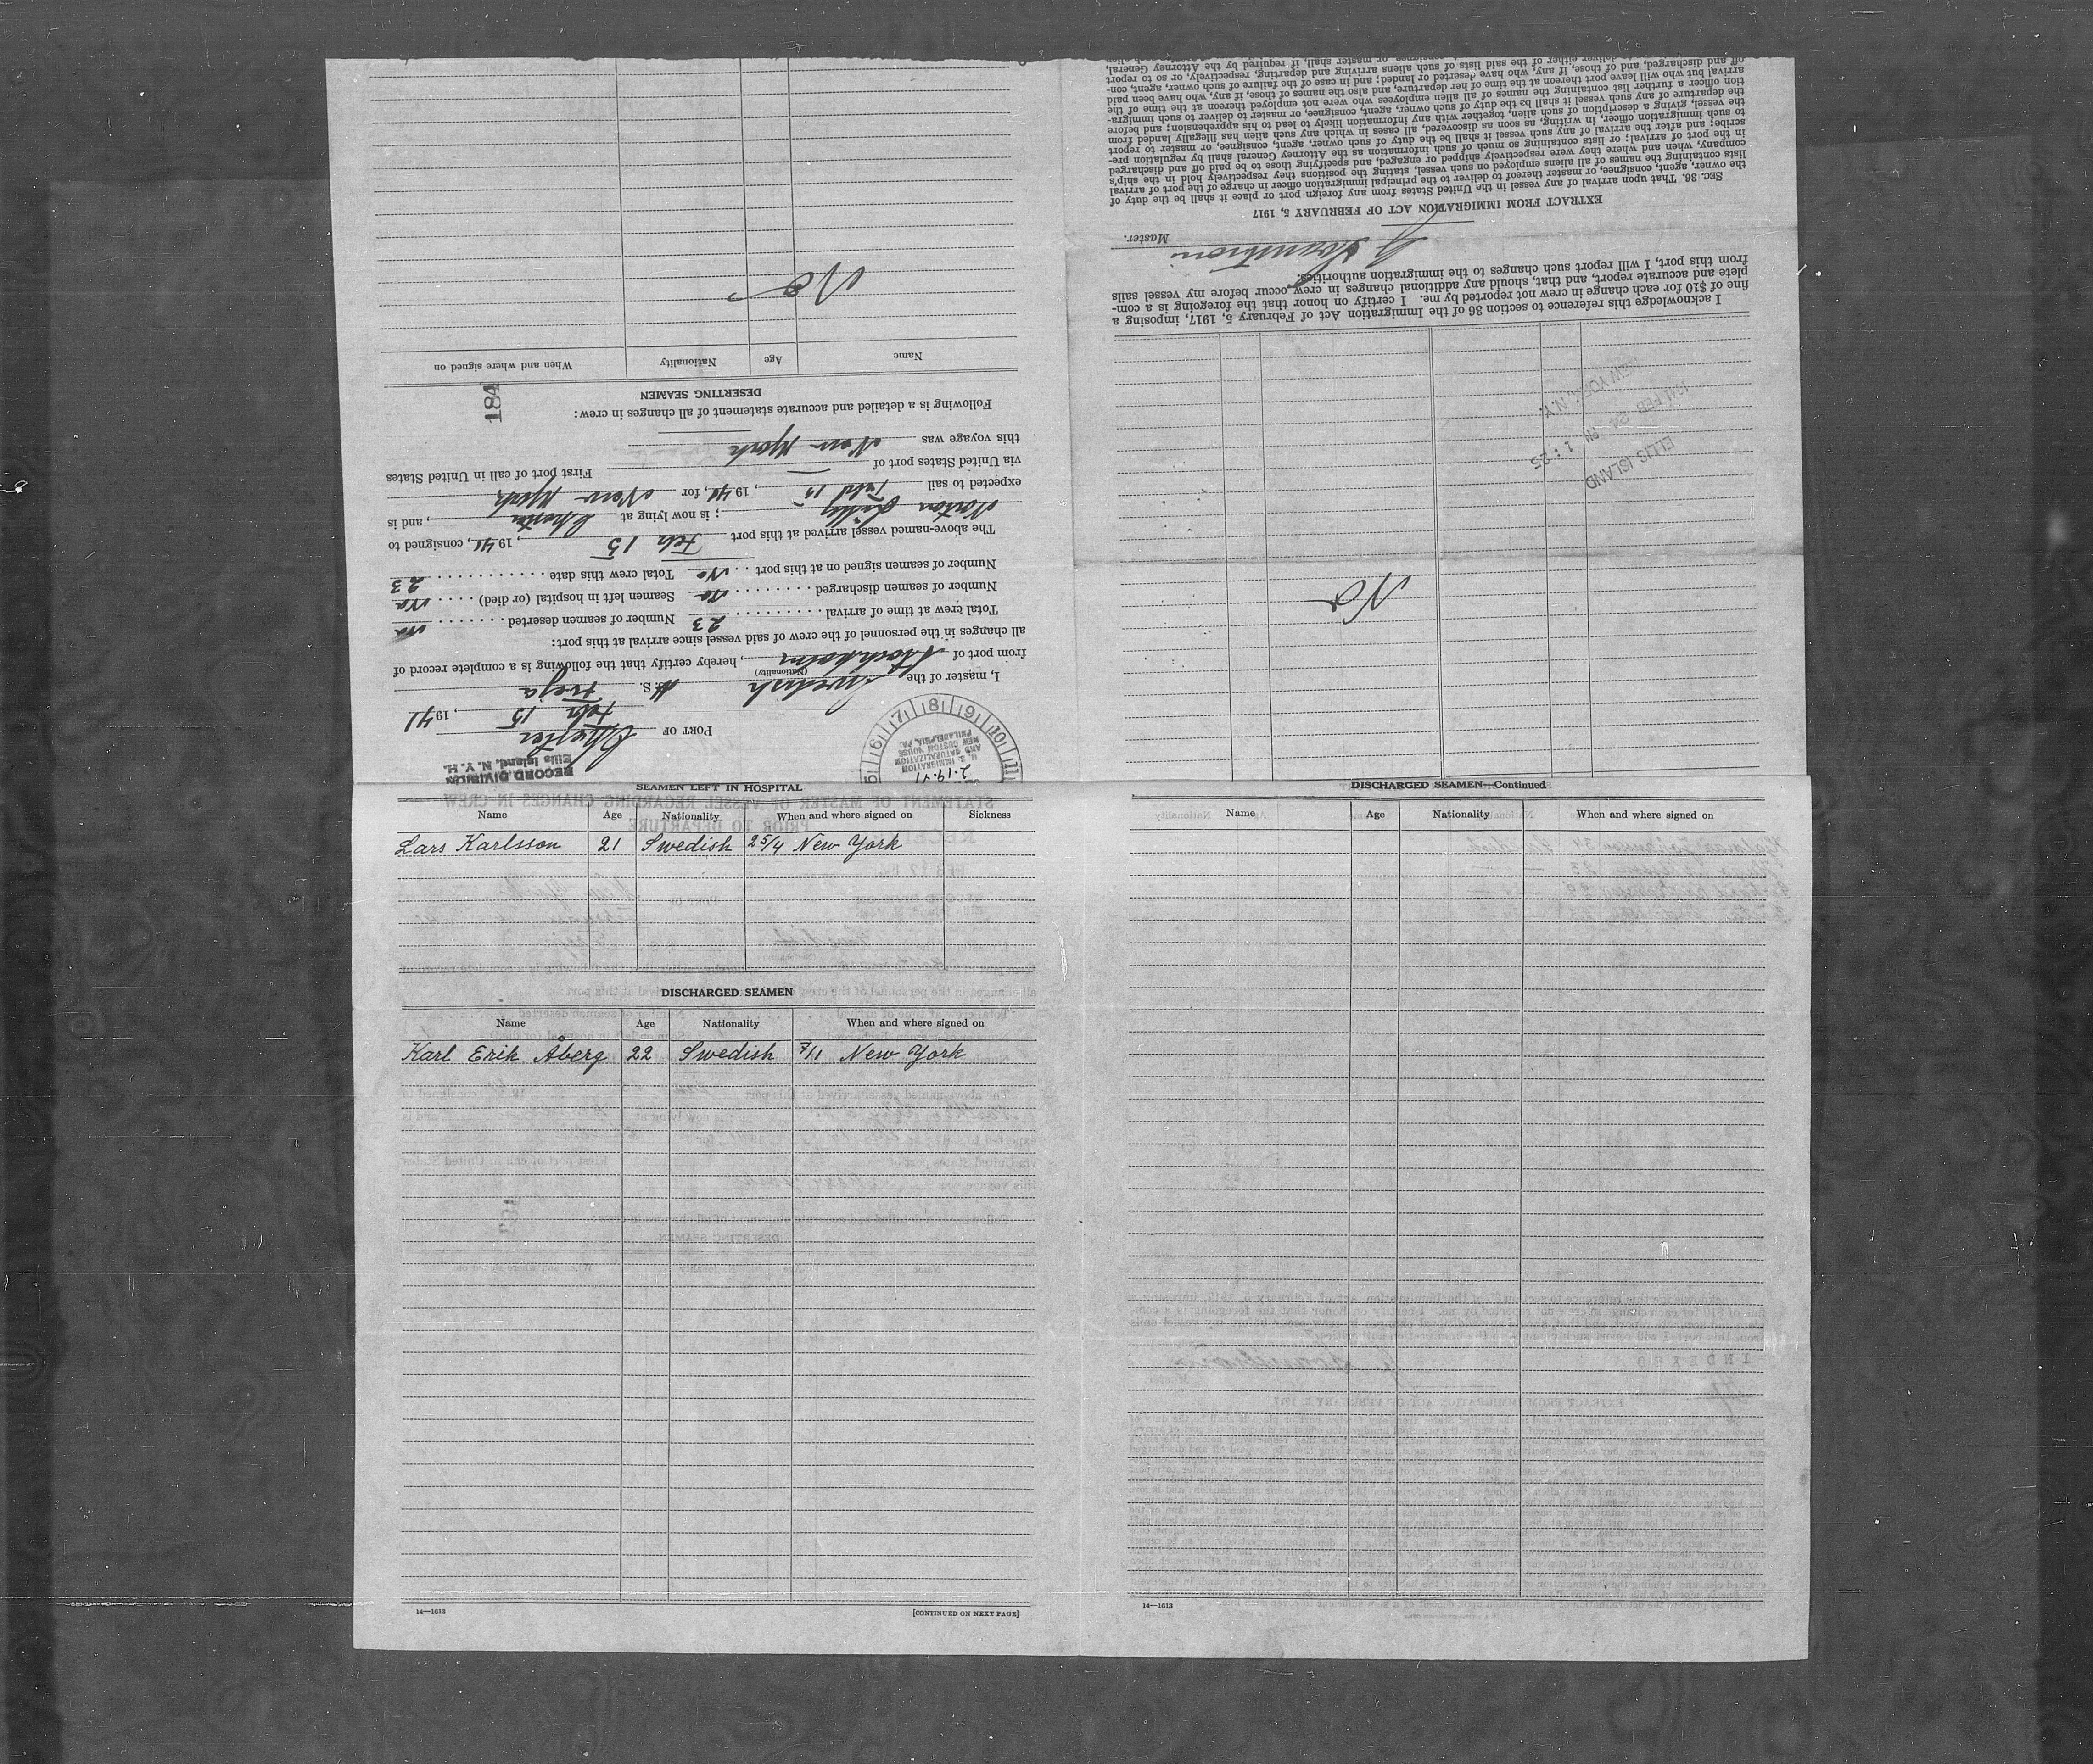 SEAMEN LEFT IN HOSPITAL
Name Age Nationality When and where signed on Sickness
Lars Karlsson 21 Swedish 25/4 New York
DISCHARGED SEAMEN
Name Age Nationality When and where signed on
Karl Erik Åberg 22 Swedish 7/11 New York
14—1613 [CONTINUED ON NEXT PAGE]
DISCHARGED SEAMEN—Continued
Name Age Nationality When and where signed on
14—1613
RECORD DIVISION
Ellis Island, N. Y. H.
2-19-41
U. S. IMMIGRATION
AND NATURALIZATION
NEW CUSTOM HOUSE
PHILADELPHIA, PA.
5 6 7 8 9 10 11
PORT OF Chester
Feb 15, 1941
I, master of the Swedish S. Freja
(Nationality)
from port of Stockholm, hereby certify that the following is a complete record of
all changes in the personnel of the crew of said vessel since arrival at this port:
Total crew at time of arrival 23 Number of seamen deserted No
Number of seamen discharged No Seamen left in hospital (or died) No
Number of seamen signed on at this port No Total crew this date 23
The above-named vessel arrived at this port Feb 15, 1941, consigned to
Norton Lilly; is now lying at Chester, and is
expected to sail 15, 1941, for New York
via United States port of First port of call in United States
this voyage was New York
Following is a detailed and accurate statement of all changes in crew:
184
DESERTING SEAMEN
Name Age Nationality When and where signed on
No
No
ELLIS ISLAND
1941 FEB 24 1:25
NEW YORK, N.Y.
I acknowledge this reference to section 36 of the Immigration Act of February 5, 1917, imposing a
fine of $10 for each change in crew not reported by me. I certify on honor that the foregoing is a com-
plete and accurate report, and that, should any additional changes in crew occur before my vessel sails
from this port, I will report such changes to the immigration authorities.
Master.
EXTRACT FROM IMMIGRATION ACT OF FEBRUARY 5, 1917
SEC. 36. That upon arrival of any vessel in the United States from any foreign port or place it shall be the duty of
the owner, agent, consignee, or master thereof to deliver to the principal immigration officer in charge of the port of arrival
lists containing the names of all aliens employed on such vessel, stating the positions they respectively hold in the ship's
company, when and where they were respectively shipped or engaged, and specifying those to be paid off and discharged
in the port of arrival; or lists containing so much of such information as the Attorney General shall by regulation pre-
scribe; and after the arrival of any such vessel it shall be the duty of such owner, agent, consignee, or master to report
to such immigration officer, in writing, as soon as discovered, all cases in which any such alien has illegally landed from
the vessel, giving a description of such alien, together with any information likely to lead to his apprehension; and before
the departure of any such vessel it shall be the duty of such owner, agent, consignee, or master to deliver to such immigra-
tion officer a further list containing the names of all alien employees who were not employed thereon at the time of the
arrival but who will leave port thereon at the time of her departure, and also the names of those, if any, who have been paid
off and discharged, and of those, if any, who have deserted or landed; and in case of the failure of such owner, agent, con-
signee, or master to deliver either of the said lists of such aliens arriving and departing, respectively, or so to report